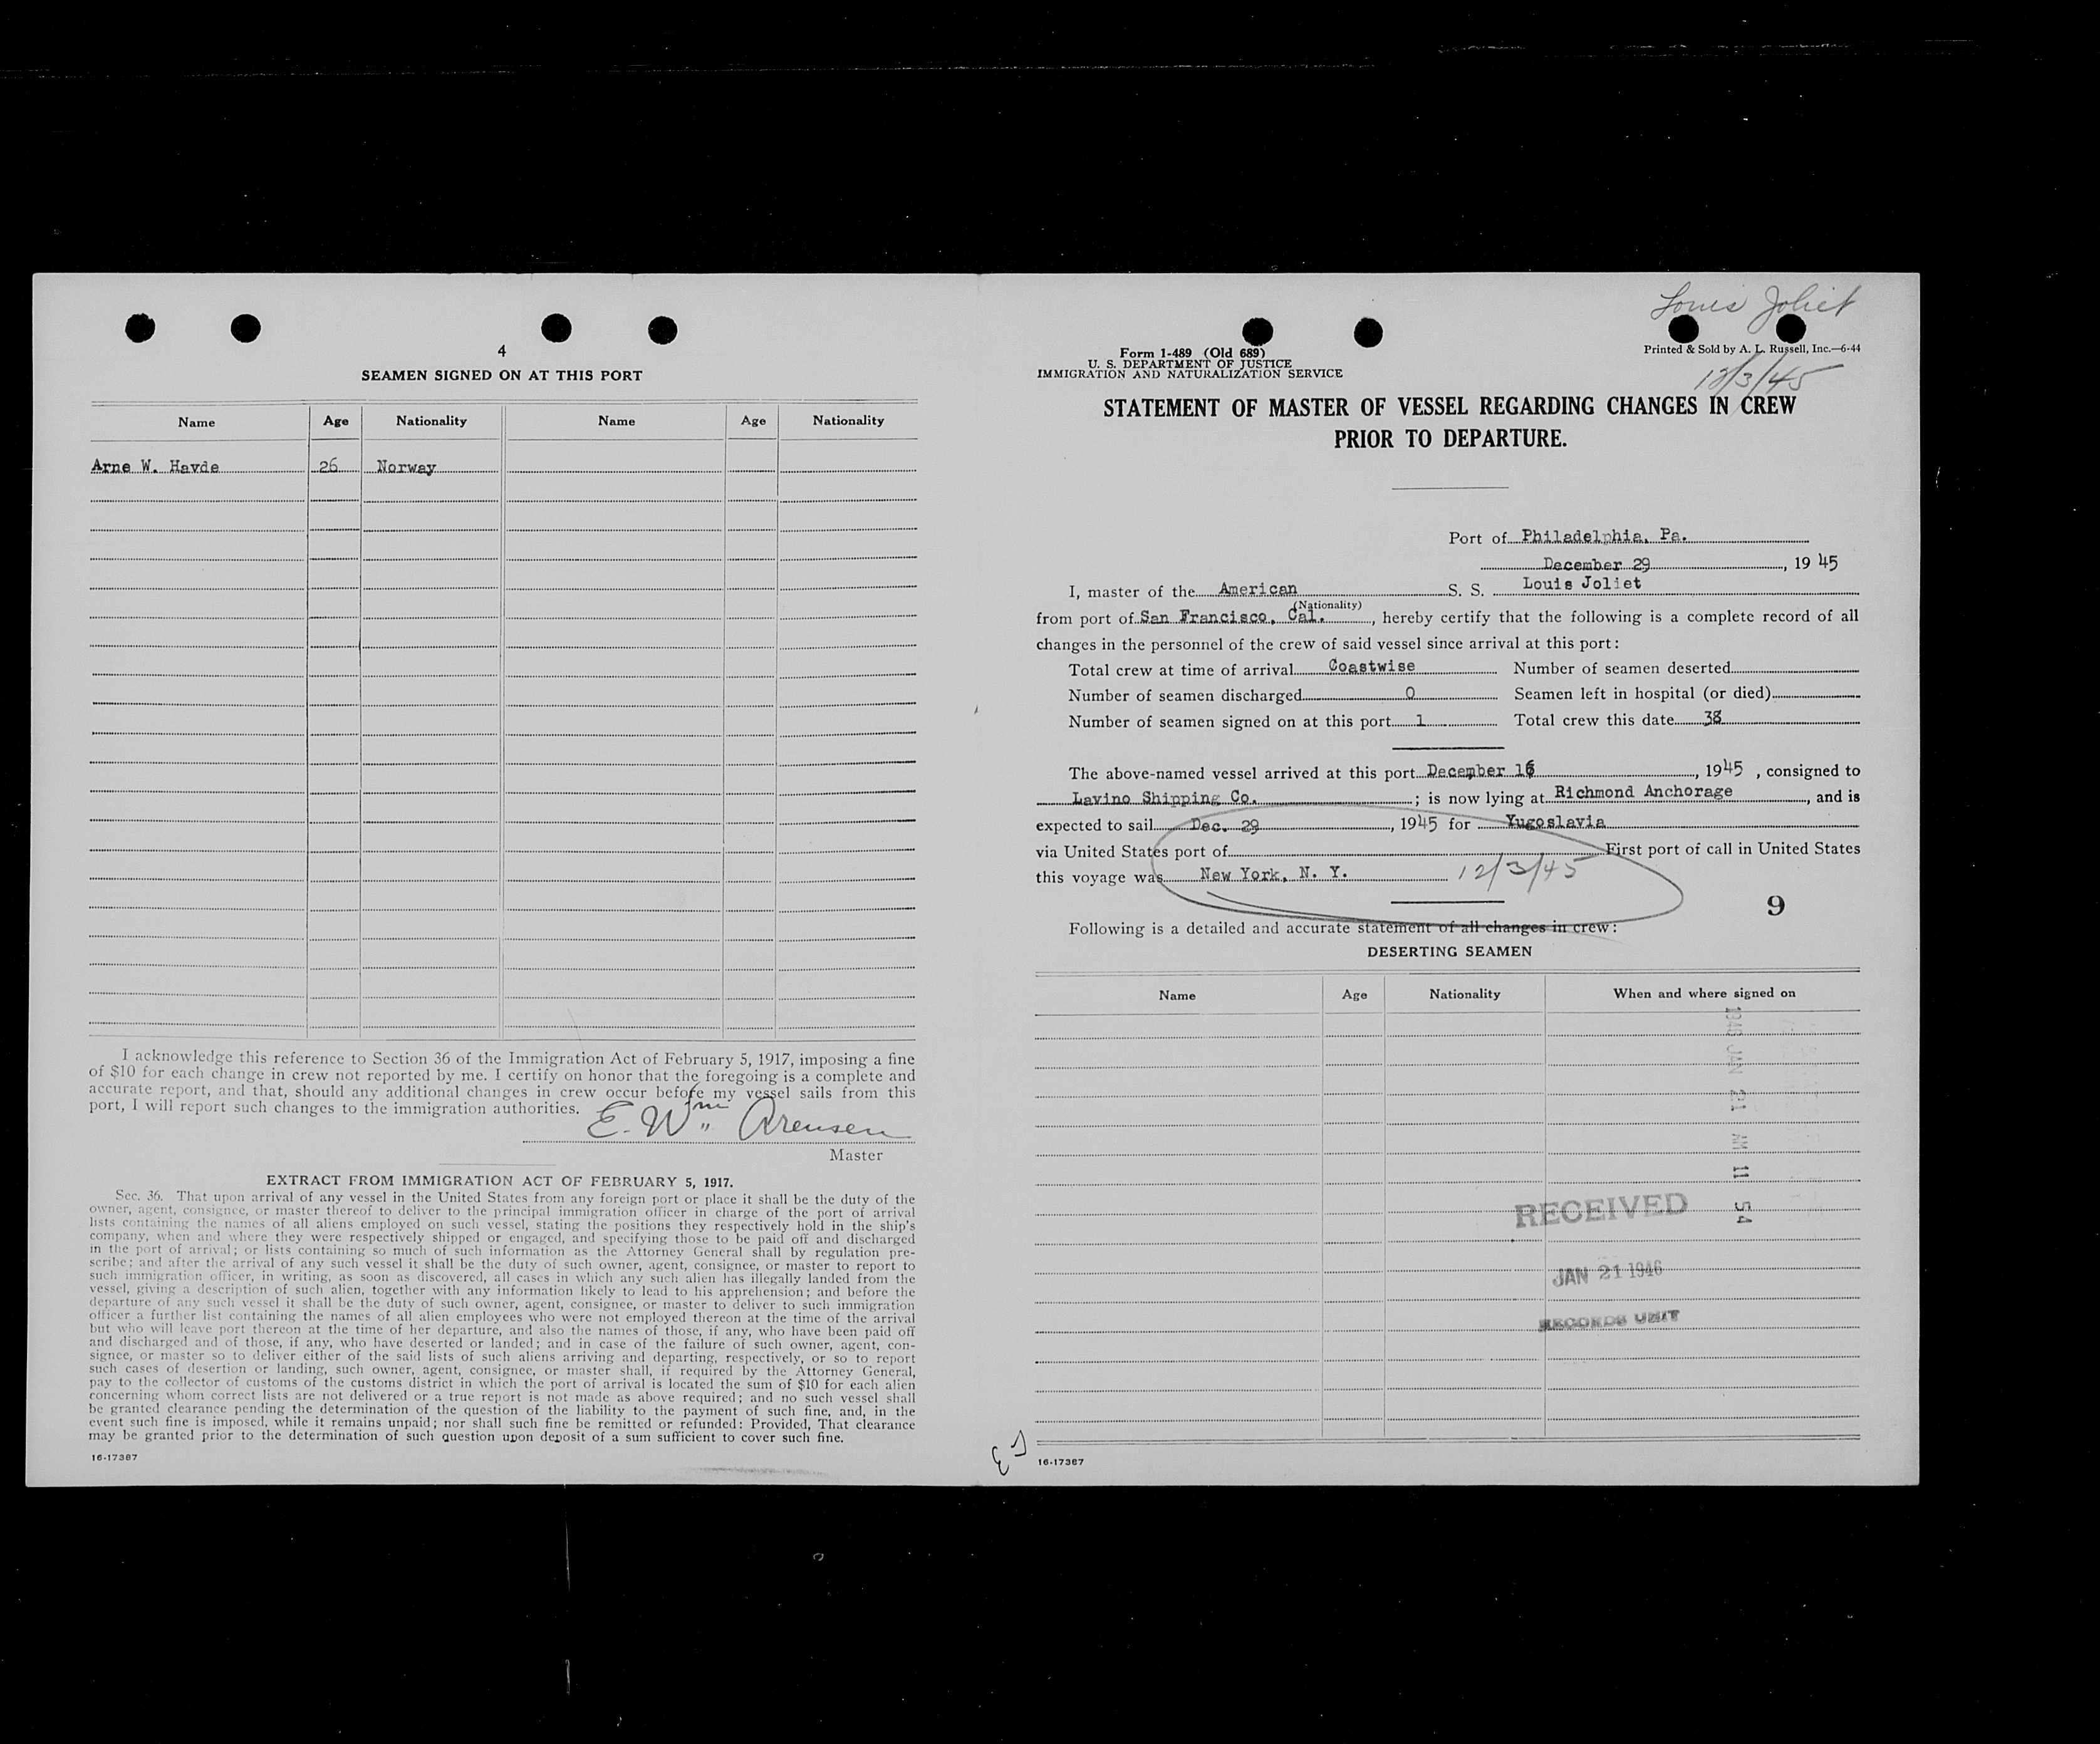 4
SEAMEN SIGNED ON AT THIS PORT
Name Age Nationality Name Age Nationality
Arne W. Havde 26 Norway
I acknowledge this reference to Section 36 of the Immigration Act of February 5, 1917, imposing a fine
of $10 for each change in crew not reported by me. I certify on honor that the foregoing is a complete and
accurate report, and that, should any additional changes in crew occur before my vessel sails from this
port, I will report such changes to the immigration authorities.
E. Wm Arensen
Master
EXTRACT FROM IMMIGRATION ACT OF FEBRUARY 5, 1917.
Sec. 36. That upon arrival of any vessel in the United States from any foreign port or place it shall be the duty of the
owner, agent, consignee, or master thereof to deliver to the principal immigration officer in charge of the port of arrival
lists containing the names of all aliens employed on such vessel, stating the positions they respectively hold in the ship's
company, when and where they were respectively shipped or engaged, and specifying those to be paid off and discharged
in the port of arrival; or lists containing so much of such information as the Attorney General shall by regulation pre-
scribe; and after the arrival of any such vessel it shall be the duty of such owner, agent, consignee, or master to report to
such immigration officer, in writing, as soon as discovered, all cases in which any such alien has illegally landed from the
vessel, giving a description of such alien, together with any information likely to lead to his apprehension; and before the
departure of any such vessel it shall be the duty of such owner, agent, consignee, or master to deliver to such immigration
officer a further list containing the names of all alien employees who were not employed thereon at the time of the arrival
but who will leave port thereon at the time of her departure, and also the names of those, if any, who have been paid off
and discharged and of those, if any, who have deserted or landed; and in case of the failure of such owner, agent, con-
signee, or master so to deliver either of the said lists of such aliens arriving and departing, respectively, or so to report
such cases of desertion or landing, such owner, agent, consignee, or master shall, if required by the Attorney General,
pay to the collector of customs of the customs district in which the port of arrival is located the sum of $10 for each alien
concerning whom correct lists are not delivered or a true report is not made as above required; and no such vessel shall
be granted clearance pending the determination of the question of the liability to the payment of such fine, and, in the
event such fine is imposed, while it remains unpaid; nor shall such fine be remitted or refunded: Provided, That clearance
may be granted prior to the determination of such question upon deposit of a sum sufficient to cover such fine.
16-17367
Louis Joliet
Form 1-489 (Old 689)
U. S. DEPARTMENT OF JUSTICE
IMMIGRATION AND NATURALIZATION SERVICE
Printed & Sold by A. L. Russell, Inc.—6-44
12/3/45
STATEMENT OF MASTER OF VESSEL REGARDING CHANGES IN CREW
PRIOR TO DEPARTURE.
Port of Philadelphia, Pa.
December 29, 1945
I, master of the American S. S. Louis Joliet
(Nationality)
from port of San Francisco, Cal., hereby certify that the following is a complete record of all
changes in the personnel of the crew of said vessel since arrival at this port:
Total crew at time of arrival Coastwise Number of seamen deserted
Number of seamen discharged 0 Seamen left in hospital (or died)
Number of seamen signed on at this port 1 Total crew this date 38
The above-named vessel arrived at this port December 16, 1945, consigned to
Lavino Shipping Co.; is now lying at Richmond Anchorage, and is
expected to sail Dec. 29, 1945 for Yugoslavia
via United States port of First port of call in United States
this voyage was New York, N. Y. 12/3/45
9
Following is a detailed and accurate statement of all changes in crew:
DESERTING SEAMEN
Name Age Nationality When and where signed on
1946 JAN 21 AM 11 54
RECEIVED
JAN 21 1946
RECORDS UNIT
16-17367